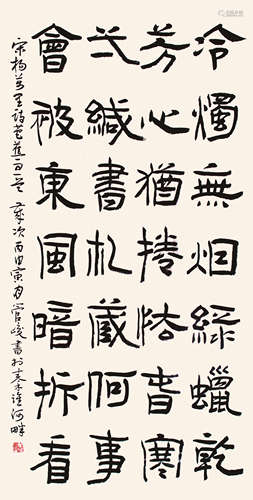 冷燭無烟綠蠟乾
芳心猶捲怯春寒
弌緘書札藏何事
會被東風暗拆看
宋楊萬里詩芭蕉一首 歲次丙申寅月管峻書於秦淮河畔